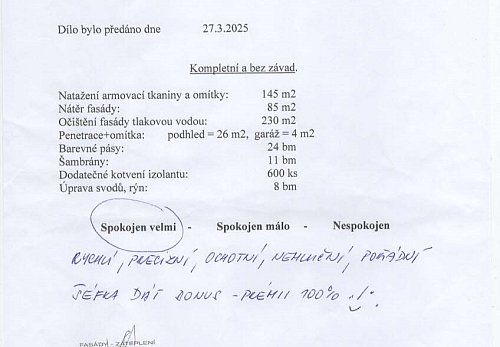 Dílo bylo předáno dne 27.3.2025
Kompletní a bez závad.
Natažení armovací tkaniny a omítky: 145 m2
Nátěr fasády: 85 m2
Očištění fasády tlakovou vodou: 230 m2
Penetrace+omítka: podhled = 26 m2, garáž = 4 m2
Barevné pásy: 24 bm
Šambrány: 11 bm
Dodatečné kotvení izolantu: 600 ks
Úprava svodů, rýn: 8 bm
Spokojen velmi - Spokojen málo - Nespokojen
RYCHLÍ, PRECIZNÍ, OCHOTNÍ, NEHLUČNÍ, POŘÁDNÍ
ŠÉFKA DÁT BONUS - PRÉMII 100%
FASÁDY - ZATEPLENÍ